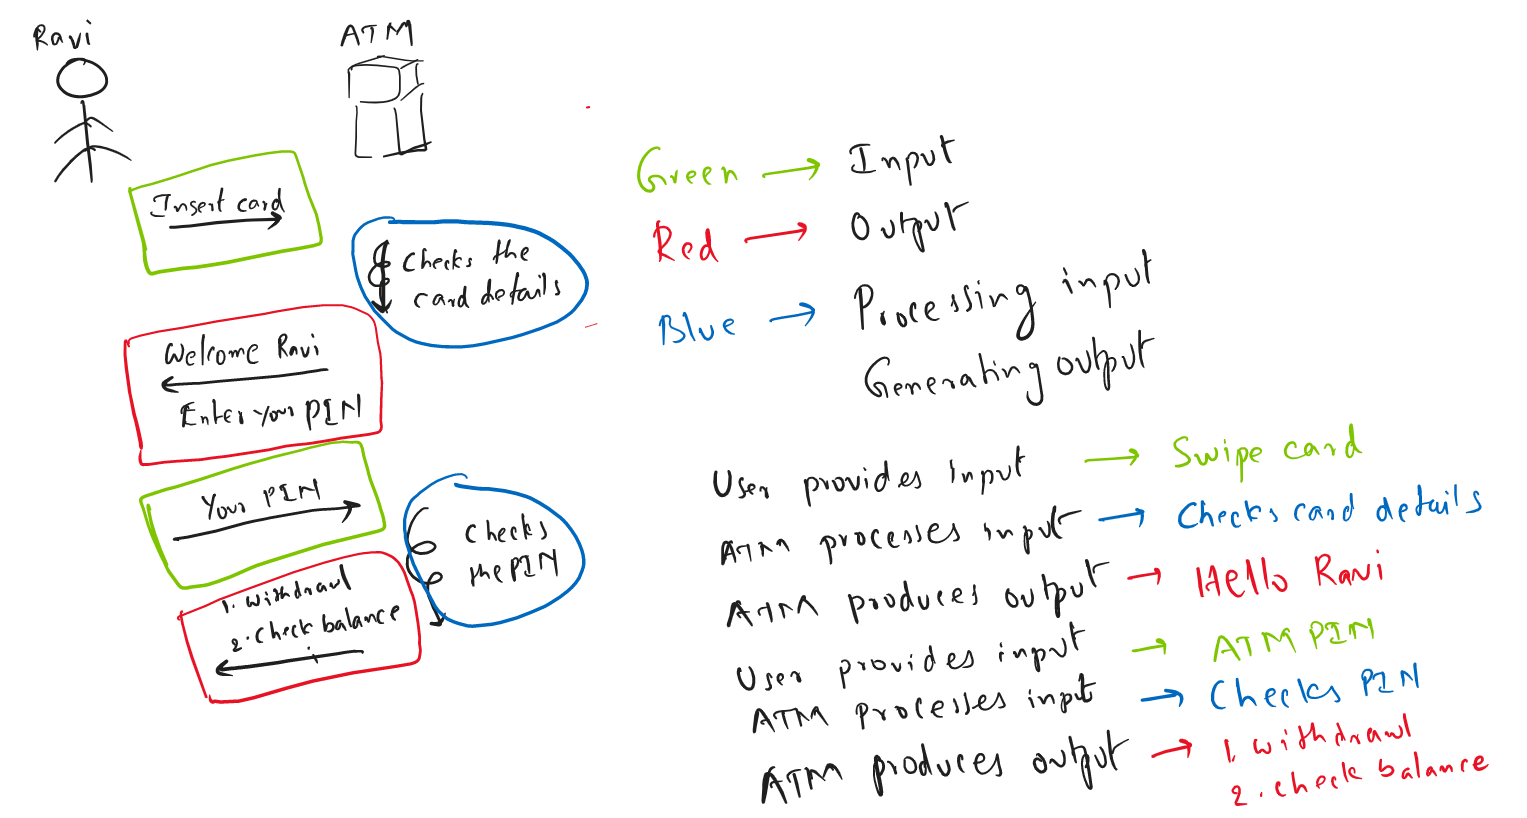 Ravi
ATM
Insert card
Checks the
card details
Welcome Ravi
Enter your PIN
Your PIN
Checks
the PIN
1. Withdrawl
2. Check balance
Green → Input
Red → Output
Blue → Processing input
Generating output
User provides input → Swipe card
ATM processes input → Checks card details
ATM produces output → Hello Ravi
User provides input → ATM PIN
ATM processes input → Checks PIN
ATM produces output → 1. Withdrawl
2. check balance